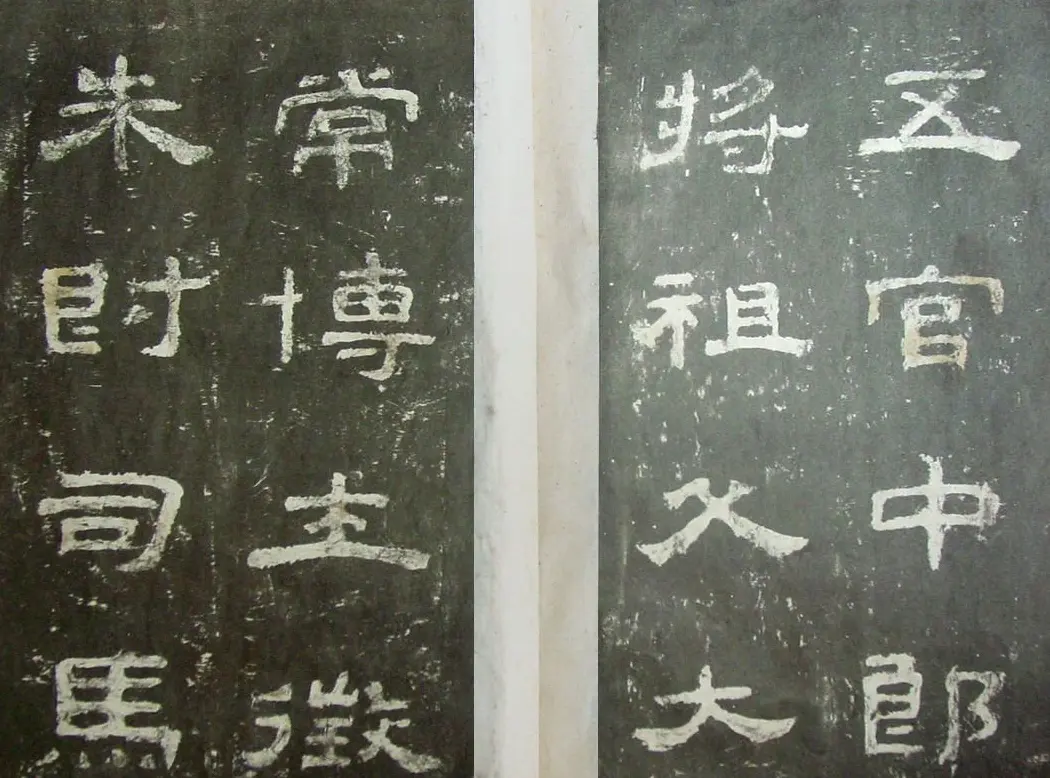 五官中郎
將祖父大
常博士徵
朱爵司馬